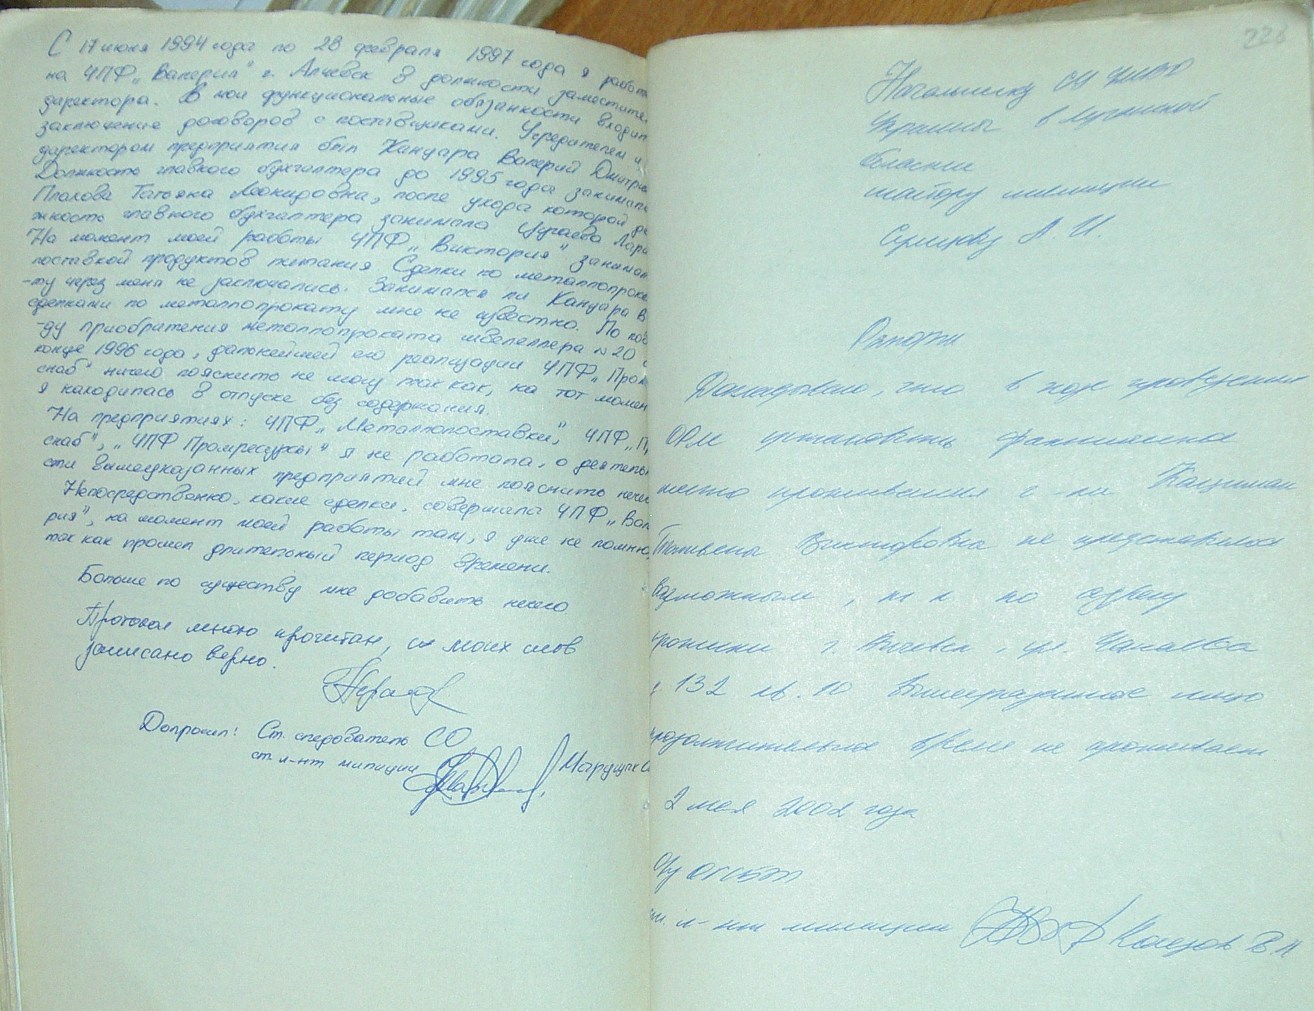 С 17 июня 1994 года по 28 февраля 1997 года я работ
на ЧПФ „Валерия" г. Алчевск в должности заместите
директора. В мои функциональные обязанности входил
заключение договоров с поставщиками. Учредителем и
директором предприятия был Кандара Валерий Дмитри
Должность главного бухгалтера до 1995 года занимал
Татьяна Леонидовна, после ухода которой до
жность главного бухгалтера занимала Лари
На момент моей работы ЧПФ „Виктория" занимал
поставкой продуктов питания. Сделки по металлопрока
-ту через меня не заключались. Занимался ли Кандара В
сделками по металлопрокату мне не известно. По пов
-ду приобретения металлопроката швеллера №20
конце 1996 года, дальнейшей его реализации ЧПФ „Пром
снаб" ничего пояснить не могу так как, на тот момен
я находилась в отпуске без содержания.
На предприятиях: ЧПФ „Металлопоставки", ЧПФ „П
снаб", „ЧПФ Промресурсы" я не работала, о деятель
сти вышеуказанных предприятий мне пояснить нече
Непосредственно, какие сделки, совершала ЧПФ „Вал
рия", на момент моей работы там, я уже не помню,
так как прошел длительный период времени.
Больше по существу мне добавить нечего
Протокол мною прочитан, с моих слов
записано верно.
Допросил: Ст. следователь СО
ст л-нт милиции
226
Начальнику
Украины в Луганской
области
майору милиции
А. И.
Рапорт
Докладываю, что в ходе проведения
ОРМ установить фактическое
место проживания г-ки
Викторовна не представилось
возможным, т к по адресу
г. Алчевск, ул. Чапаева
д. 132 кв. 10 вышеуказанное лицо
продолжительное время не проживает
2 мая 2002 года
ст. л-нт милиции